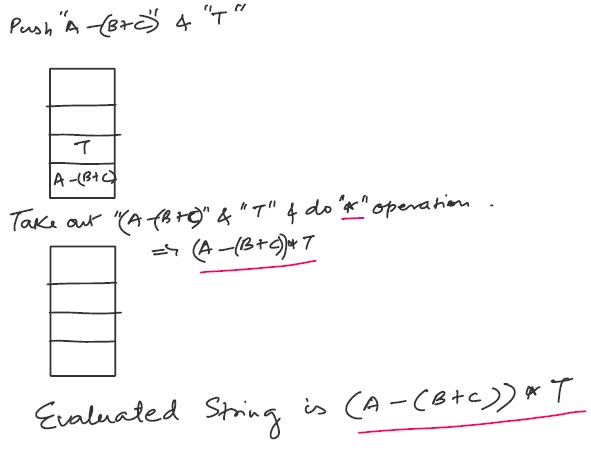 Push "A-(B+C)" & "T"
T
A-(B+C)
Take out "(A-(B+C)" & "T" & do "*" operation.
=> (A-(B+C))* T
Evaluated String is (A-(B+C)) * T